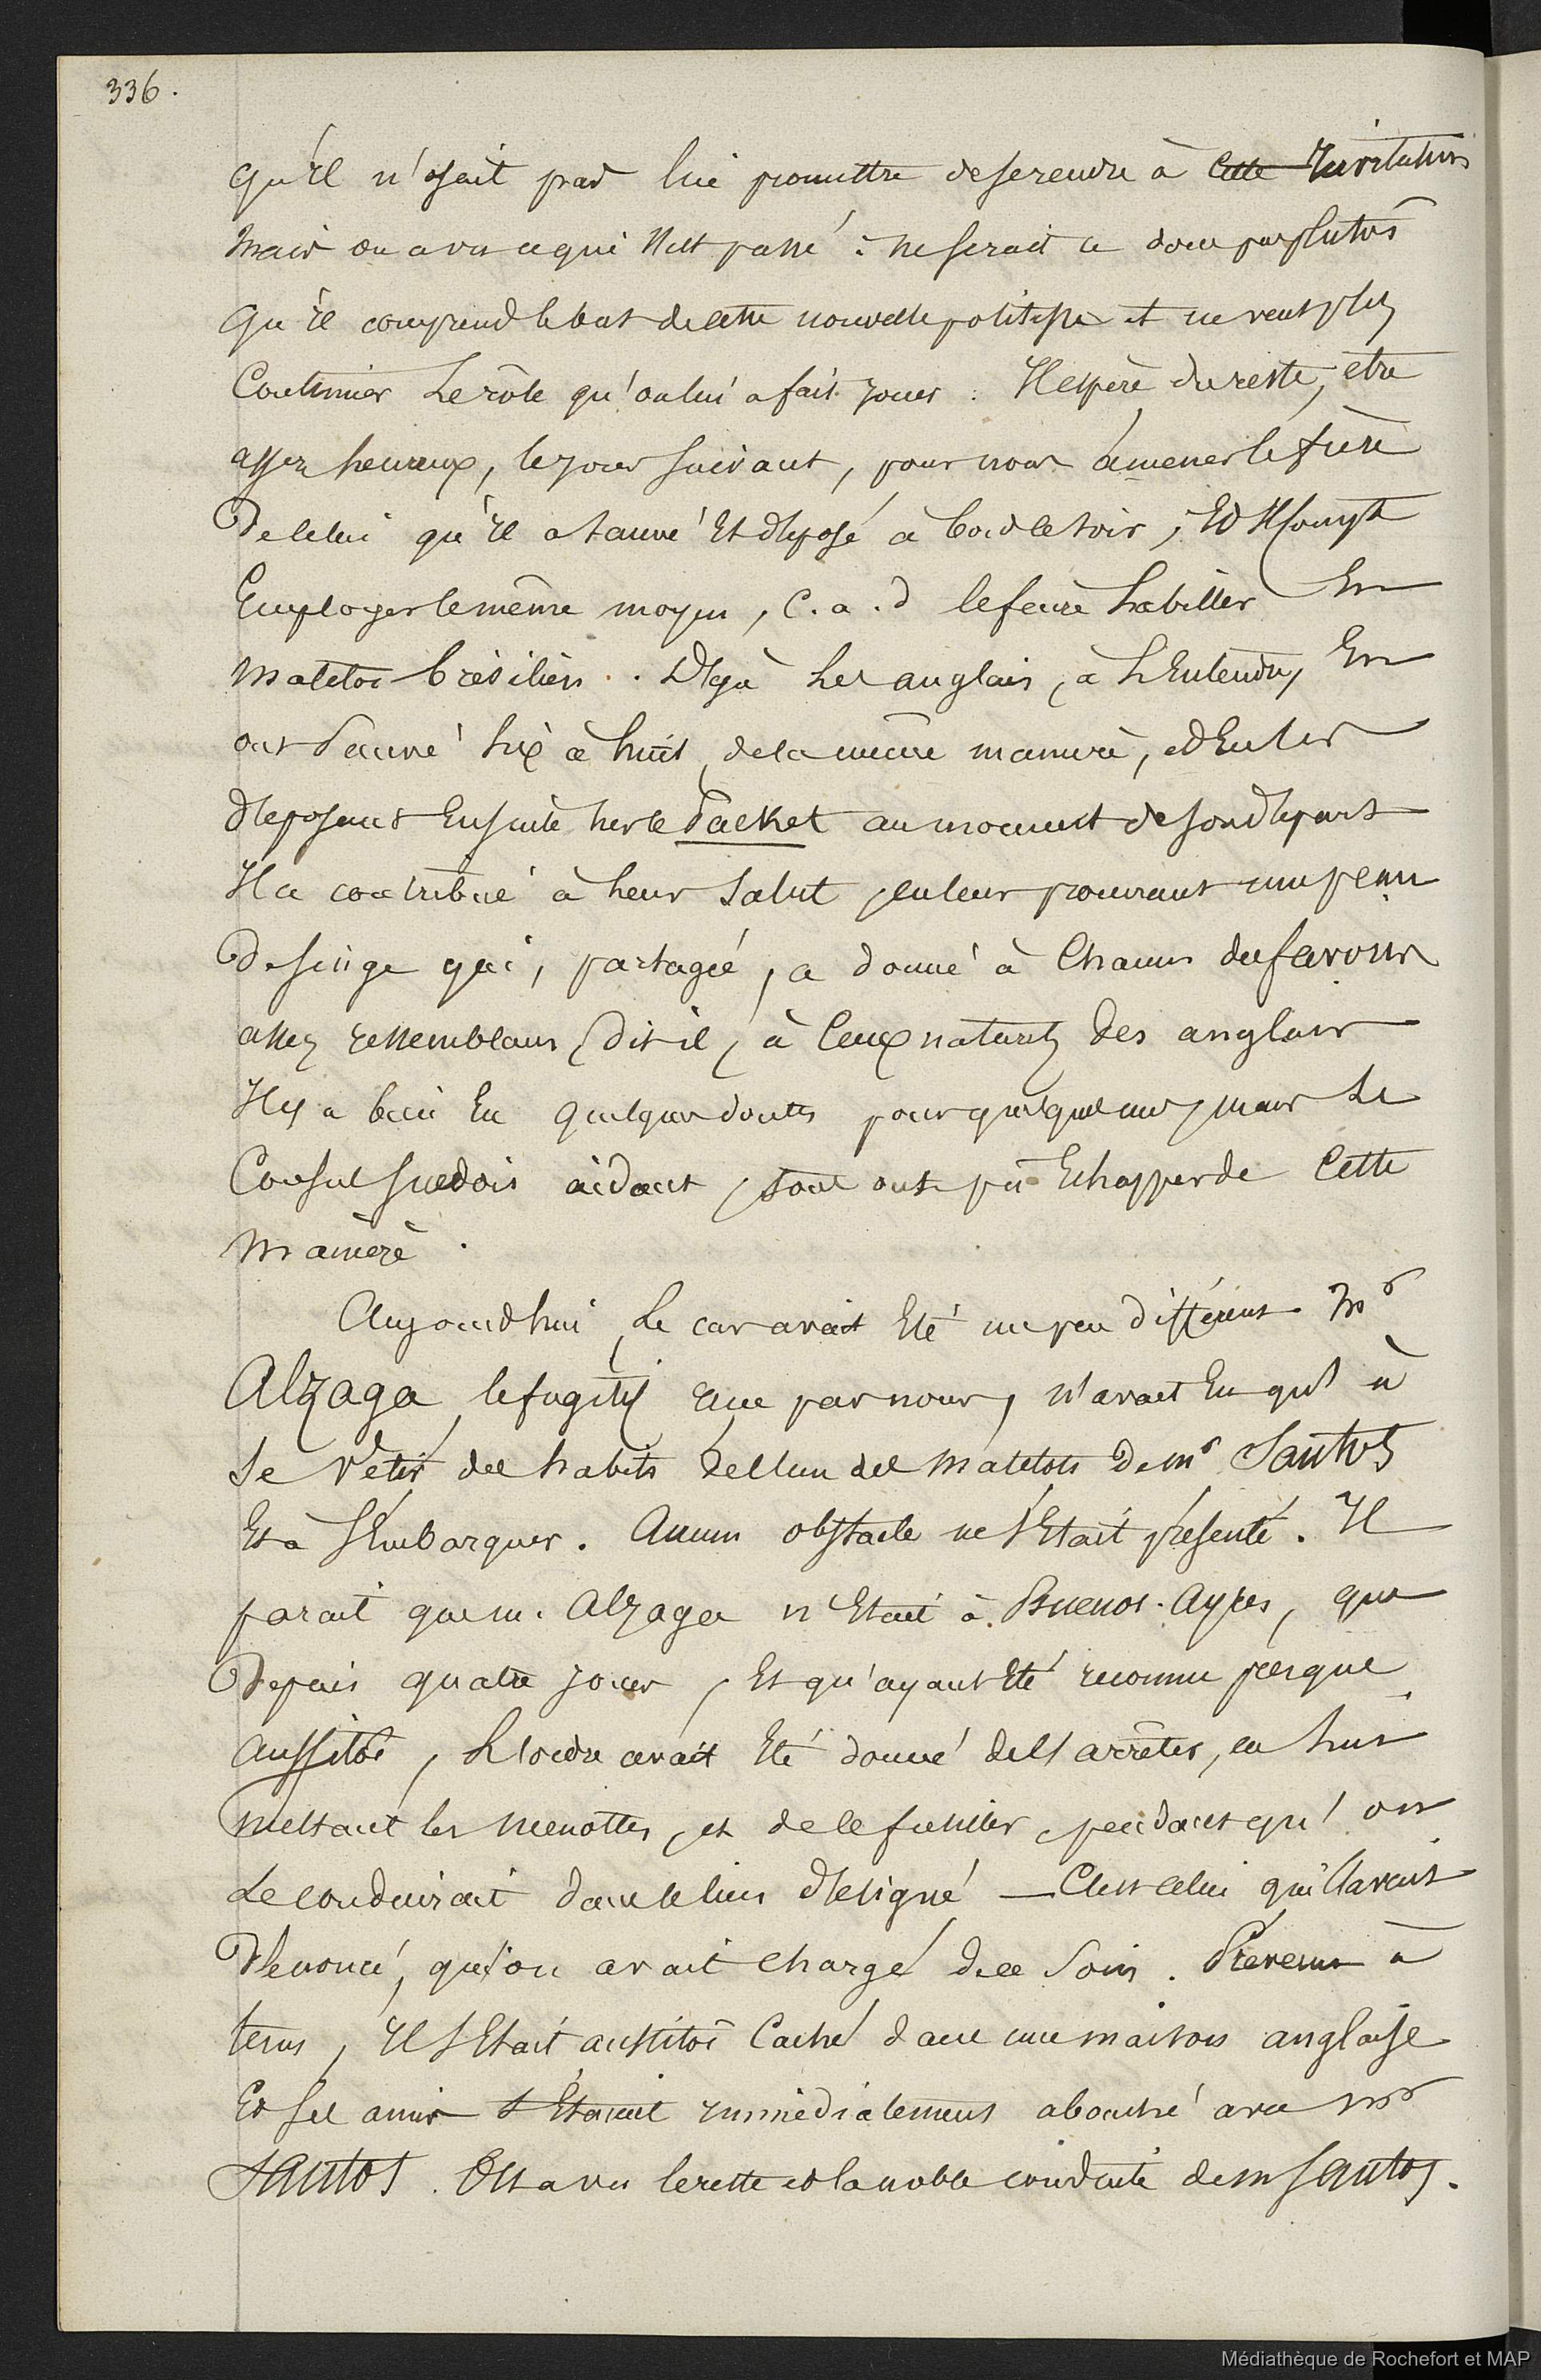 336.
qu'il n'osait pas lui promettre de se rendre à cette Invitation
mais on a vu ce qui s'est passé : ne serait ce donc pas plutôt
qu'il comprend le but de cette nouvelle politique et ne veut plus
Continuer le rôle qu'on lui a fait jouer : Il espère du reste, être
assez heureux, le jour suivant, pour nous amener le frère
De celui qu'il a sauvé Et déposé à bord ce soir, Et Il compte
Employer le même moyen, C. a. d le faire habiller En
matelot brésilien. Déja les anglais, à l'Entendre, En
ont sauvé six à huit, de la même manière, et En les
déposant Ensuite sur le Packet au moment de son départ
Il a contribué à leur salut, en leur procurant une peau
De singe qui, partagée, a donné à Chacun des favoris
assez ressemblans, dit-il, à Ceux naturels des anglais
Il y a bien Eu quelques doutes pour quelques uns, mais le
Consul suedois aidant, tous ont pu Echapper de Cette
manière.
Aujourdhui, le cas avait Eté un peu différent. Mr
Alzaga, le fugitif reçu par nous, n'avait Eu qu'à
se vêtir des habits de l'un des matelots de Mr Santos
Et à s'Embarquer. Aucun obstacle ne s'Etait présenté. Il
parait que m. Alzaga n'Etait à Buenos-Ayres, que
Depuis quatre jours, Et qu'ayant Eté reconnu presque
aussitôt, l'ordre avait Eté donné de l'arrêter, en lui
mettant les menottes, et de le fusiller, pendant qu'on
le conduirait dans le lieu désigné — C'est celui qui l'avait
Dénoncé, qu'on avait chargé de ce soin. Prévenu à
tems, Il s'Etait aussitôt Caché dans une maison anglaise
Et ses amis s'Etaient immédiatement abouché avec Mr
Santos. On a vu le reste et la noble conduite de m Santos.
Médiathèque de Rochefort et MAP